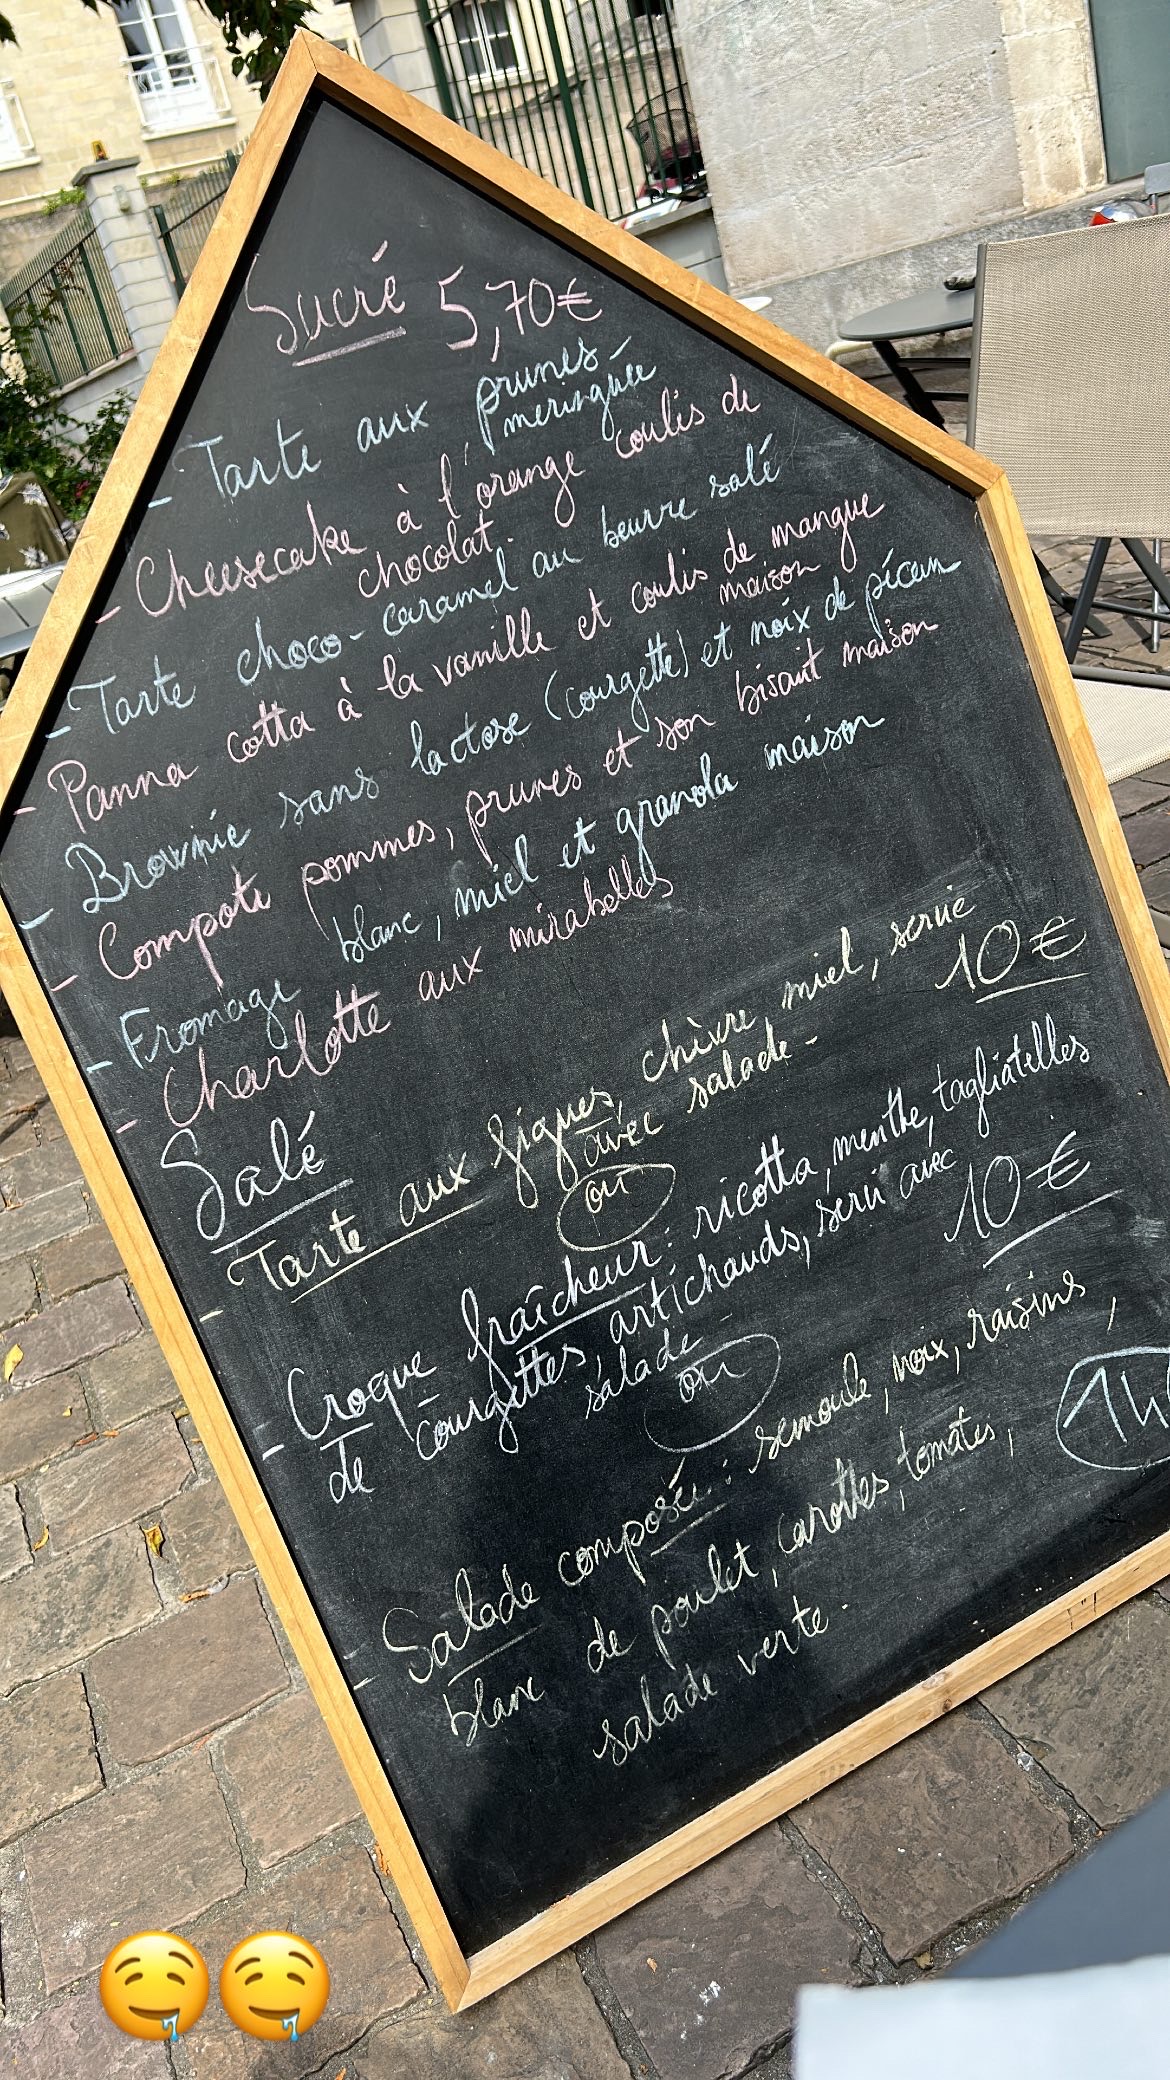 Sucré 5,70€
- Tarte aux prunes -
meringuée
- Cheesecake à l'orange coulis de
chocolat.
- Tarte choco-caramel au beurre salé
- Panna cotta à la vanille et coulis de mangue
maison
- Brownie sans lactose (courgette) et noix de pécan
- Compote pommes, prunes et son biscuit maison
- Fromage blanc, miel et granola maison
- Charlotte aux mirabelles
Salé
- Tarte aux figues, chèvre, miel, servie
avec salade - 10€
ou
- Croque fraîcheur : ricotta, menthe, tagliatelles
de courgettes, artichauds, servi avec
salade - 10€
ou
- Salade composée : semoule, noix, raisins,
blanc de poulet, carottes, tomates,
salade verte.